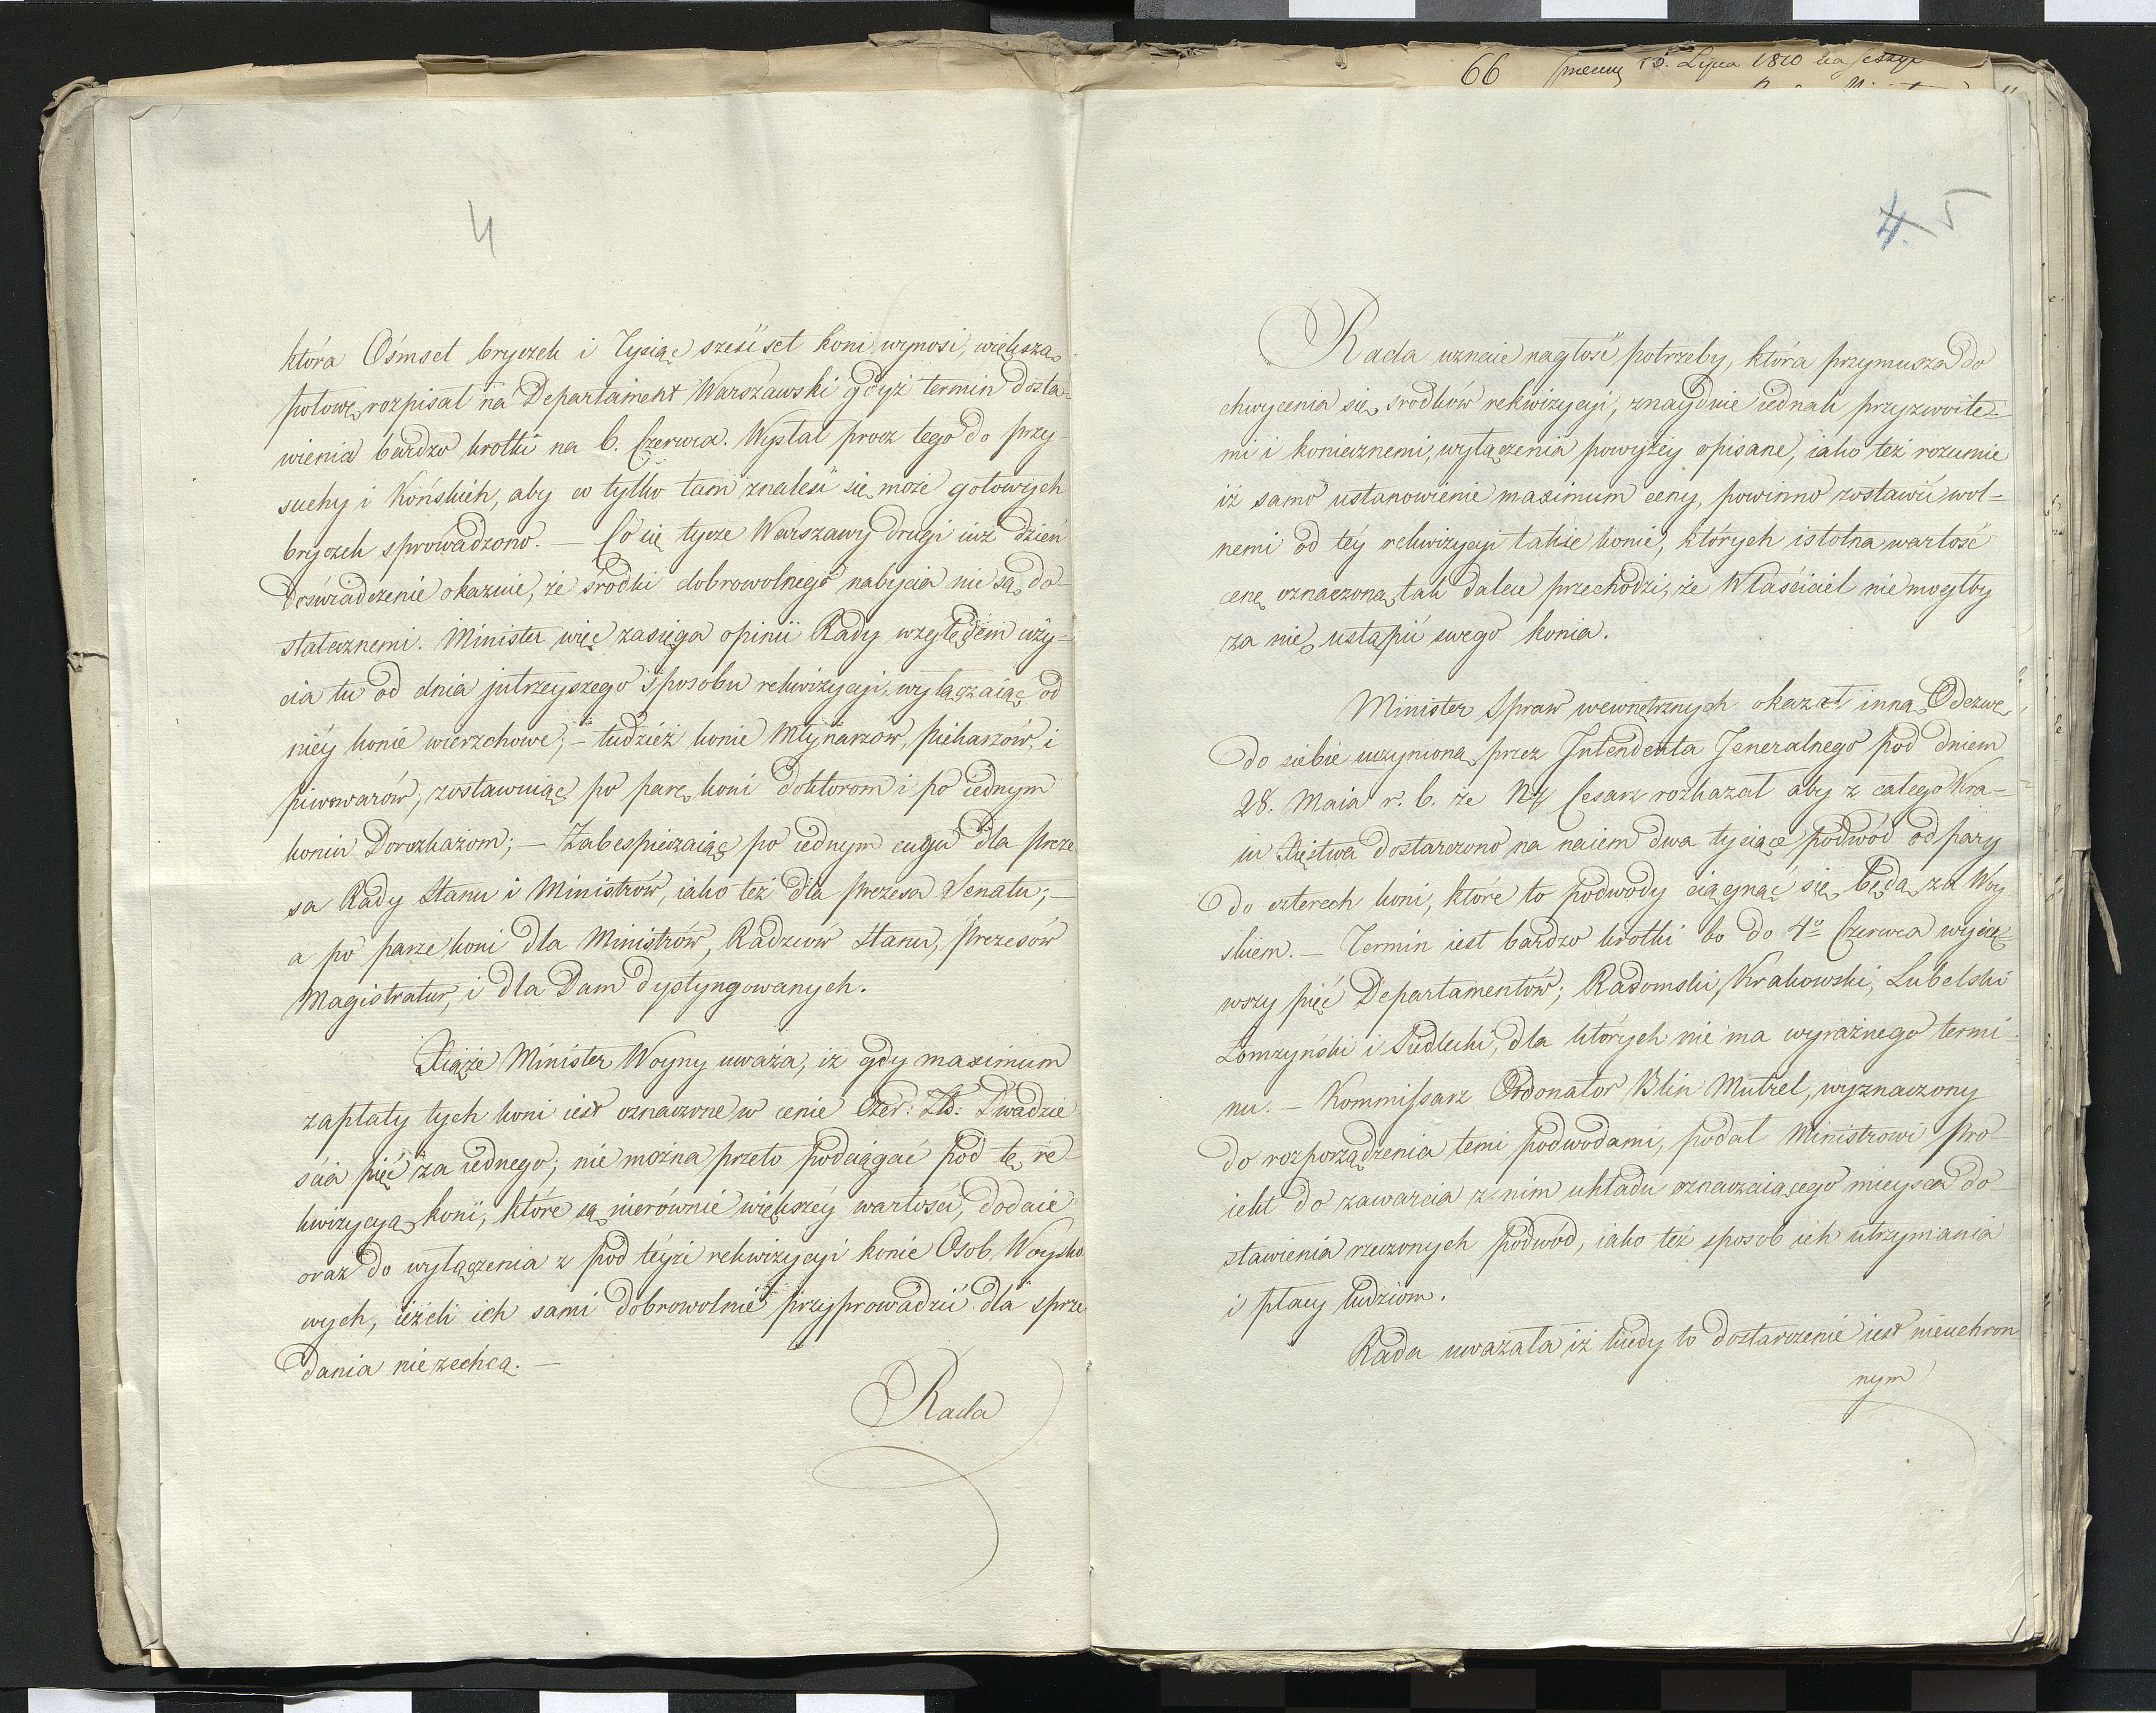 4
która Ośmset bryczek i Tysiąc sześćset koni wynosi, większą
połowę rozpisał na Departament Warszawski gdyż termin dosta-
wienia bardzo krotki na 6. Czerwca. Wysłał procz tego do Przy-
suchy i Końskich, aby co tylko tam znaleść się może gotowych
bryczek sprowadzono. — Co się tycze Warszawy drugi iuż dzień
doświadczenie okazuie, że środki dobrowolnego nabycia nie są do-
statecznemi. Minister więc zasięga opinii Rady względem uży-
cia tu od dnia jutrzeyszego sposobu rekwizycyi, wyłączaiąc od
niéy konie wierzchowe; – tudzież konie Młynarzow, piekarzów, i
piwowarów; zostawuiąc po parę koni doktorom i po iednym
koniu Dorożkażom; — Zabespieczaiąc po iednym cugu dla Preze-
sa Rady Stanu i Ministrów, iako też dla Prezesa Senatu; —
a po parze koni dla Ministrów, Radzców Stanu, Prezesów
Magistratur, i dla Dam dystyngowanych.
Xiąże Minister Woyny uważa, iż gdy maximum
zapłaty tych koni iest oznaczone w cenie Czer: Zł: Dwadzie-
ścia pięć za iednego; nie można przeto podciągać pod tę re-
kwizycyą koni, które są nierównie większéy wartości, dodaie
oraz do wyłączenia z pod téyże rekwizycyi konie Osob Woysko-
wych, ieżeli ich sami dobrowolnie przyprowadzić dla sprze-
dania nie zechcą. —
Rada
66 15. Lipca 1810 na
4. 5
Rada uznaie nagłość potrzeby, która przymusza do
chwycenia się srodków rekwizycyi, znayduie iednak przyzwoite-
mi i koniecznemi, wyłączenia powyżéy opisane, iako też rozumie
iż samo ustanowienie maximum ceny, powinno zostawić wol-
nemi od téy rekwizycyi także konie, których istotna wartość
cenę oznaczoną tak dalece przechodzi, że Właściciel nie mogłby
za nię ustąpić swego konia.
Minister Spraw wewnętrznych okazał inną Odezwę
do siebie uczynioną przez Intendenta Jeneralnego pod dniem
28. Maia r. b. że NJ Cesarz rozkazał aby z całego Kra-
iu Xięstwa dostarczono na naiem dwa tysiące podwód od pary
do czterech koni, które to podwody ciągnąć się będą za Woy-
skiem. — Termin iest bardzo krotki bo do 4º Czerwca wyiąw-
wszy pięć Departamentów; Radomski, Krakowski, Lubelski
Łomżyński i Siedlecki, dla których nie ma wyraźnego termi-
nu. — Kommissarz Ordonator Blin Mutrel, wyznaczony
do rozporządzenia temi podwodami, podał Ministrowi Pro-
iekt do zawarcia z nim układu oznaczaiącego mieysca do-
stawienia rzeczonych podwód, iako też sposob ich utrzymania
i płacy ludziom.
Rada uważała iż kiedy to dostarczenie iest nieuchron-
nym